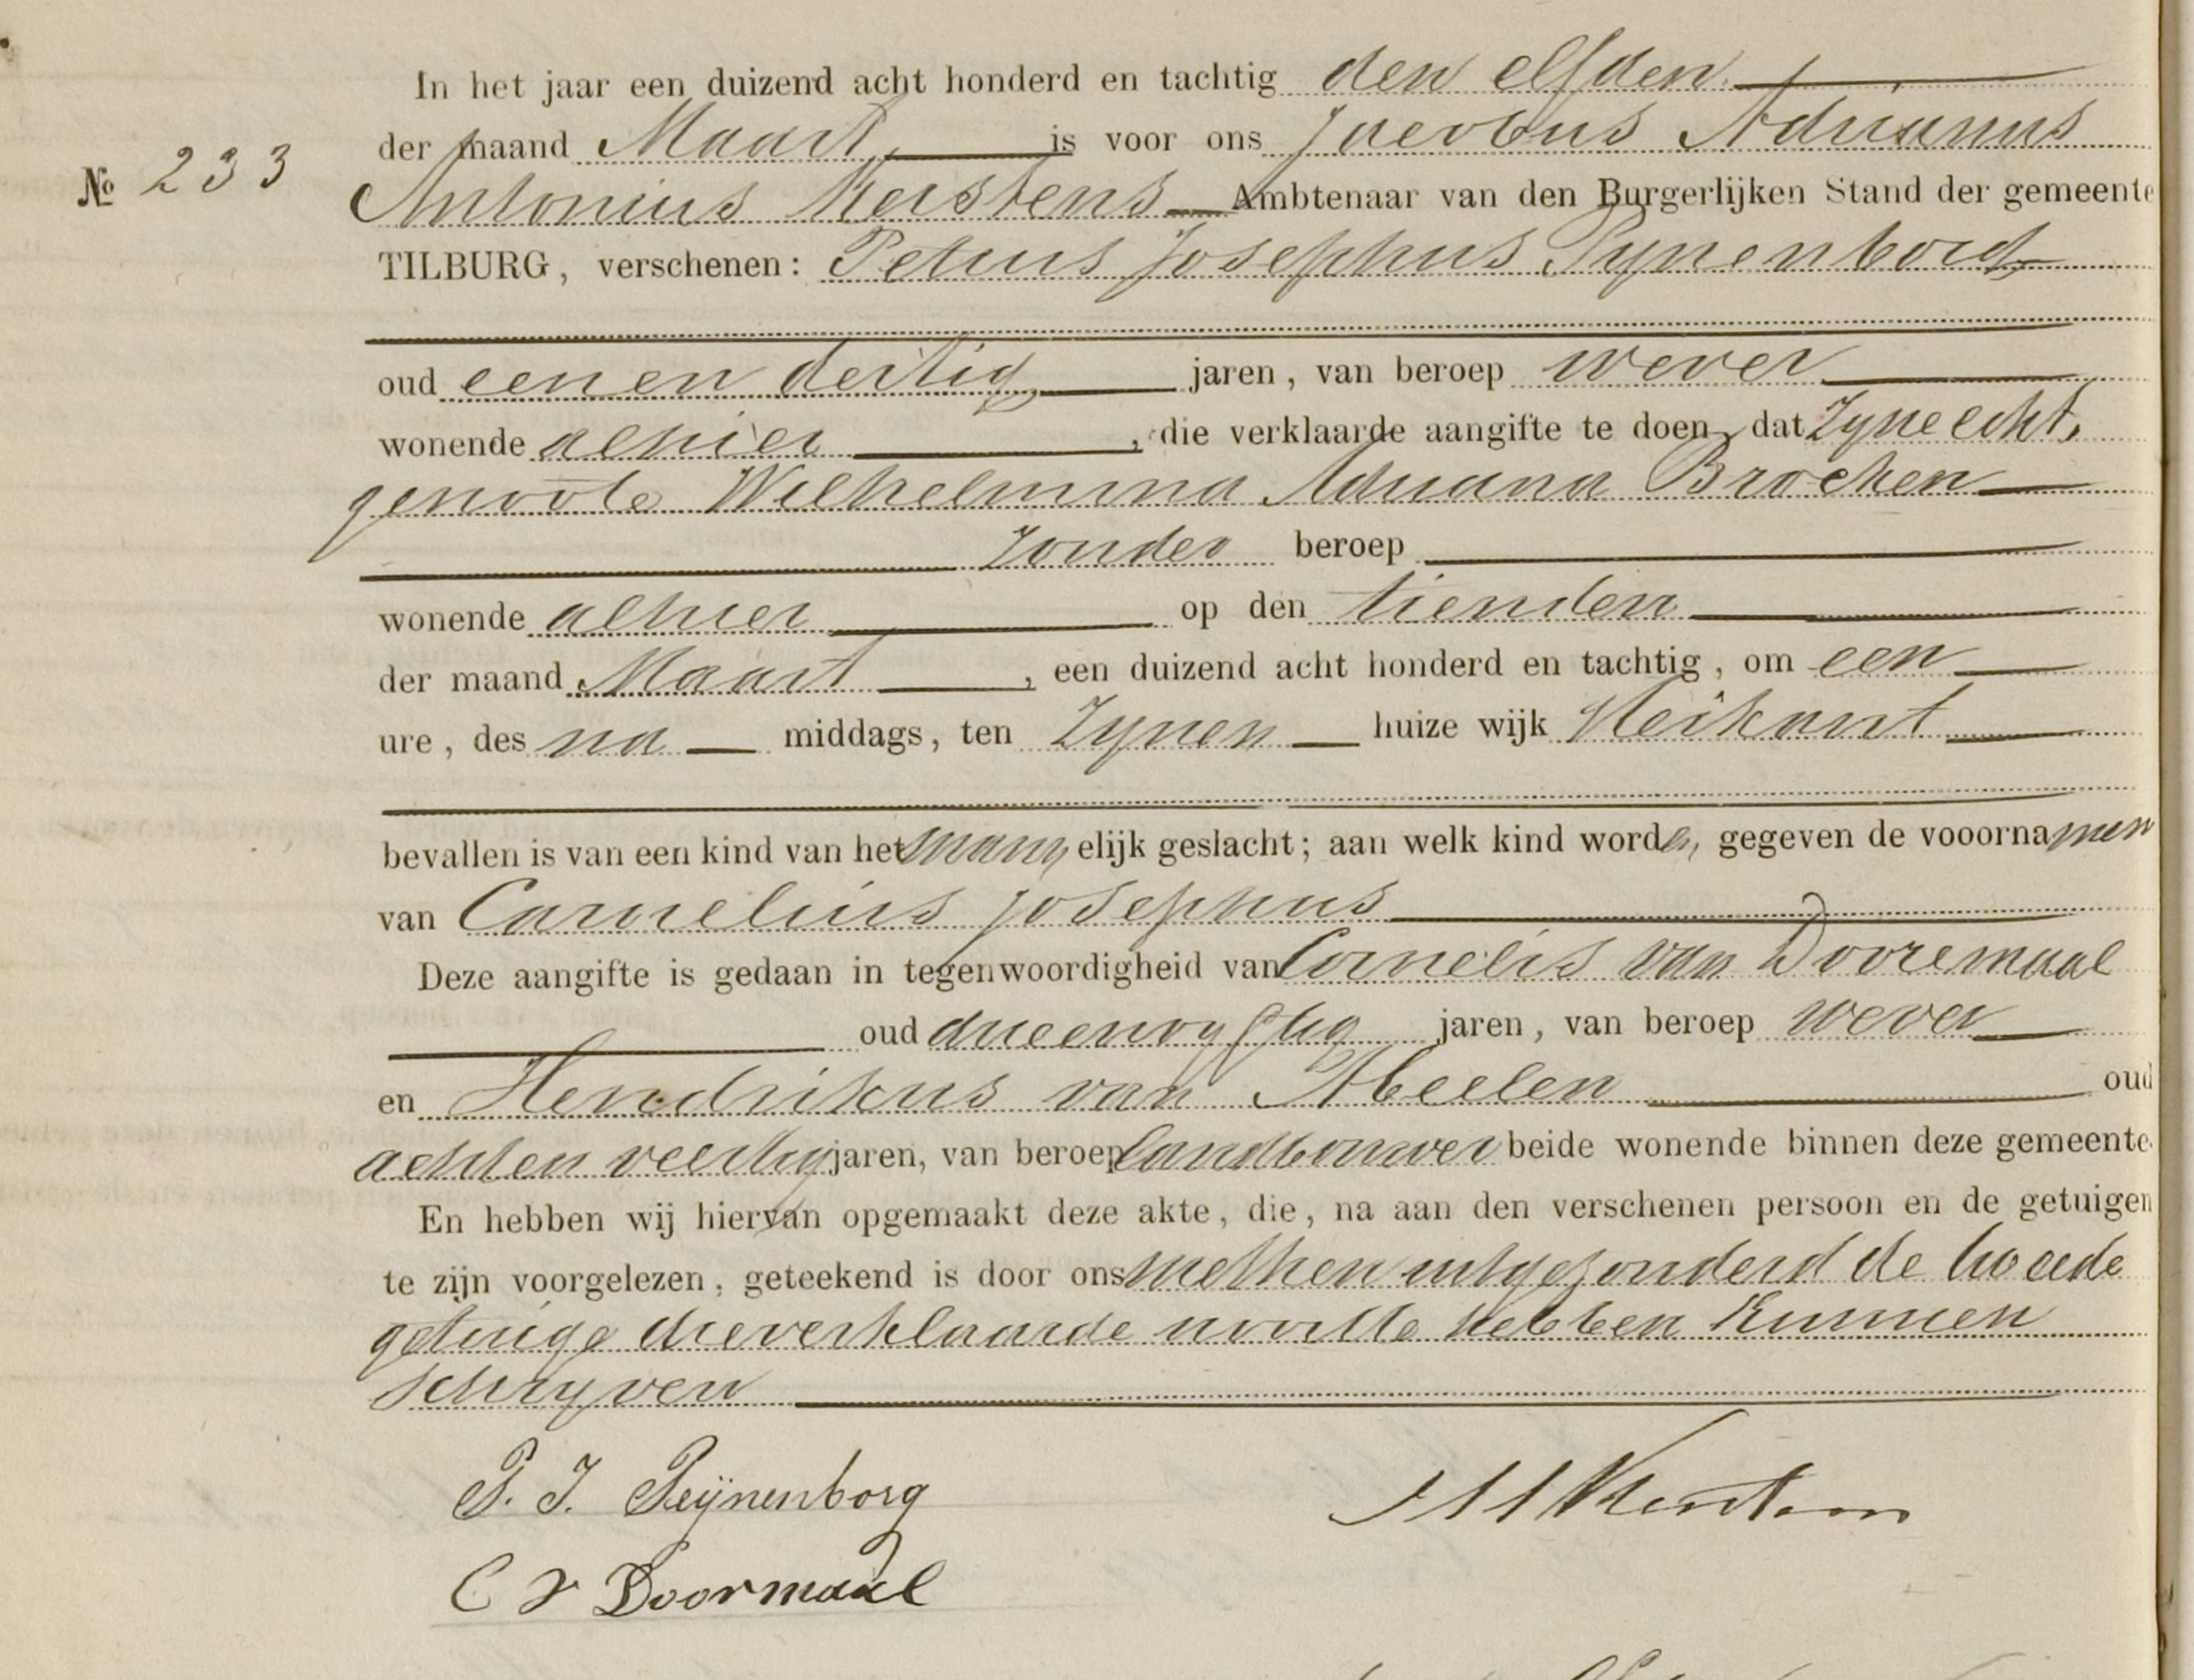 In het jaar een duizend acht honderd en tachtig den elfden
der maand Maart is voor ons Jacobus Adrianus
№ 233
Antonius Kerstens Ambtenaar van den Burgerlijken Stand der gemeente
TILBURG, verschenen: Petrus Josephus Pynenborg
oud een en dertig jaren, van beroep wever
wonende alhier, die verklaarde aangifte te doen, dat Zyne echt,
genoote Wilhelmina Adriana Brocken
zonder beroep
wonende alhier op den tienden
der maand Maart, een duizend acht honderd en tachtig, om een
ure, des na middags, ten Zynen huize wijk Heikant
bevallen is van een kind van het mann elijk geslacht; aan welk kind worden gegeven de vooornamen
van Cornelius Josephus
Deze aangifte is gedaan in tegenwoordigheid van Cornelis van Dooremaal
oud drieenvyftig jaren, van beroep wever
en Hendrikus van Abeelen oud
achten veertig jaren, van beroep landbouwer beide wonende binnen deze gemeente.
En hebben wij hiervan opgemaakt deze akte, die, na aan den verschenen persoon en de getuigen
te zijn voorgelezen, geteekend is door ons met hen uitgezonderd de tweede
getuige die verklaarde nooit te hebben kunnen
schryven
P. J. Peÿnenborg
C v Doormaal